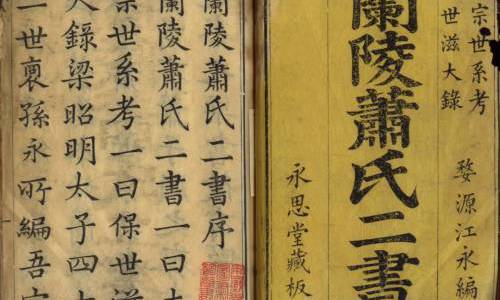 宗世系考
世滋大錄
婺源江永編
蘭陵蕭氏二書
永思堂藏板
蘭陵蕭氏二書序
蘭陵蕭氏二書一曰大
宗世系考一曰保世滋
大錄梁昭明太子四十
一世裔孫永所編吾宗